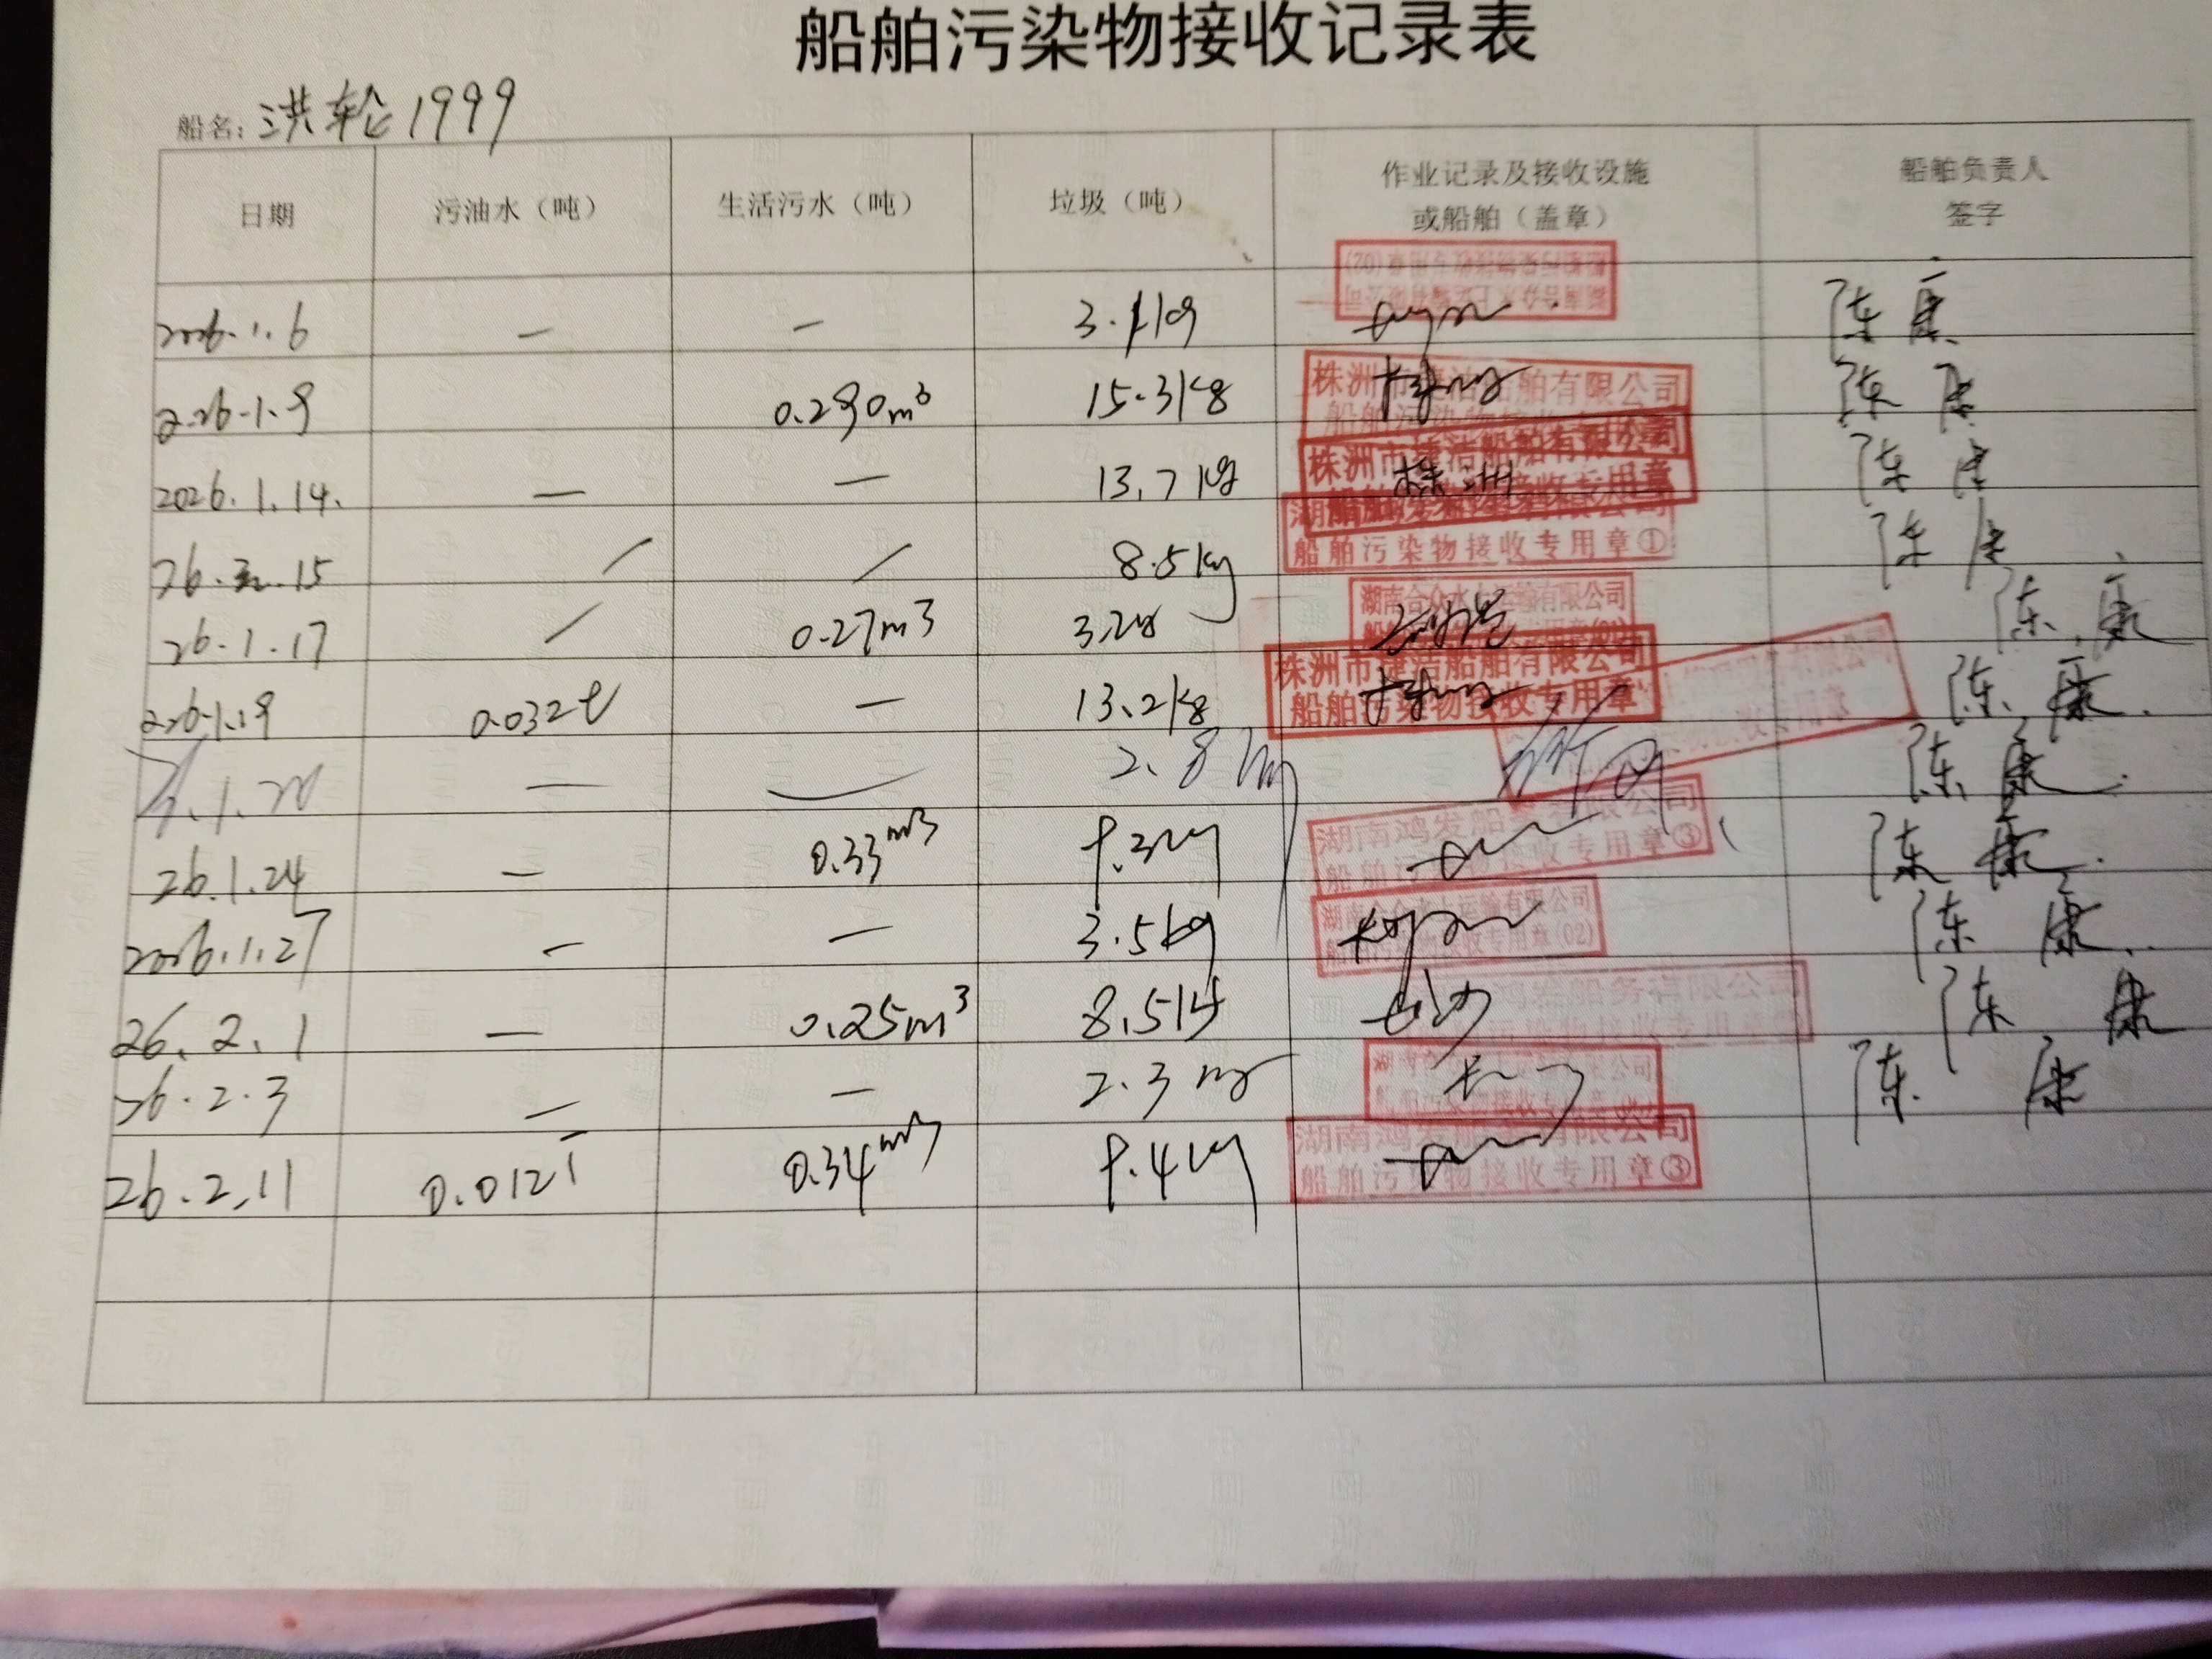 船舶污染物接收记录表
船名: 洪轮1999
日期 污油水（吨） 生活污水（吨） 垃圾（吨） 作业记录及接收设施或船舶（盖章） 船舶负责人签字
2026.1.6 — — 3.1kg 陈康
2026.1.9 0.290m³ 15.3kg 株洲 船舶有限公司 陈康
2026.1.14. — — 13.7kg 株洲市捷洁船舶有限公司 接收专用章 株洲 陈康
26. .15 / / 8.5kg 船舶污染物接收专用章① 陈康
26.1.17 / 0.27m3 3.2kg 湖南合众水上运输有限公司 陈康
2026.1.19 0.032t — 13.2kg 株洲市捷洁船舶有限公司 船舶污染物接收专用章 陈康.
.1.20 — — 2.8kg 陈康.
26.1.24 — 0.33m3 9.3kg 湖南鸿发船务有限公司 船舶污 接收专用章③ 陈康.
2026.1.27 — — 3.5kg 湖南合众水上运输有限公司 接收专用章(02) 陈康.
26.2.1 — 0.25m3 8.5kg 长沙 鸿发船务有限公司 污染物接收专用章 陈康
26.2.3 — — 2.3kg 陈康
26.2.11 0.012T 0.34m3 9.4kg 湖南鸿发船务有限公司 船舶污染物接收专用章③